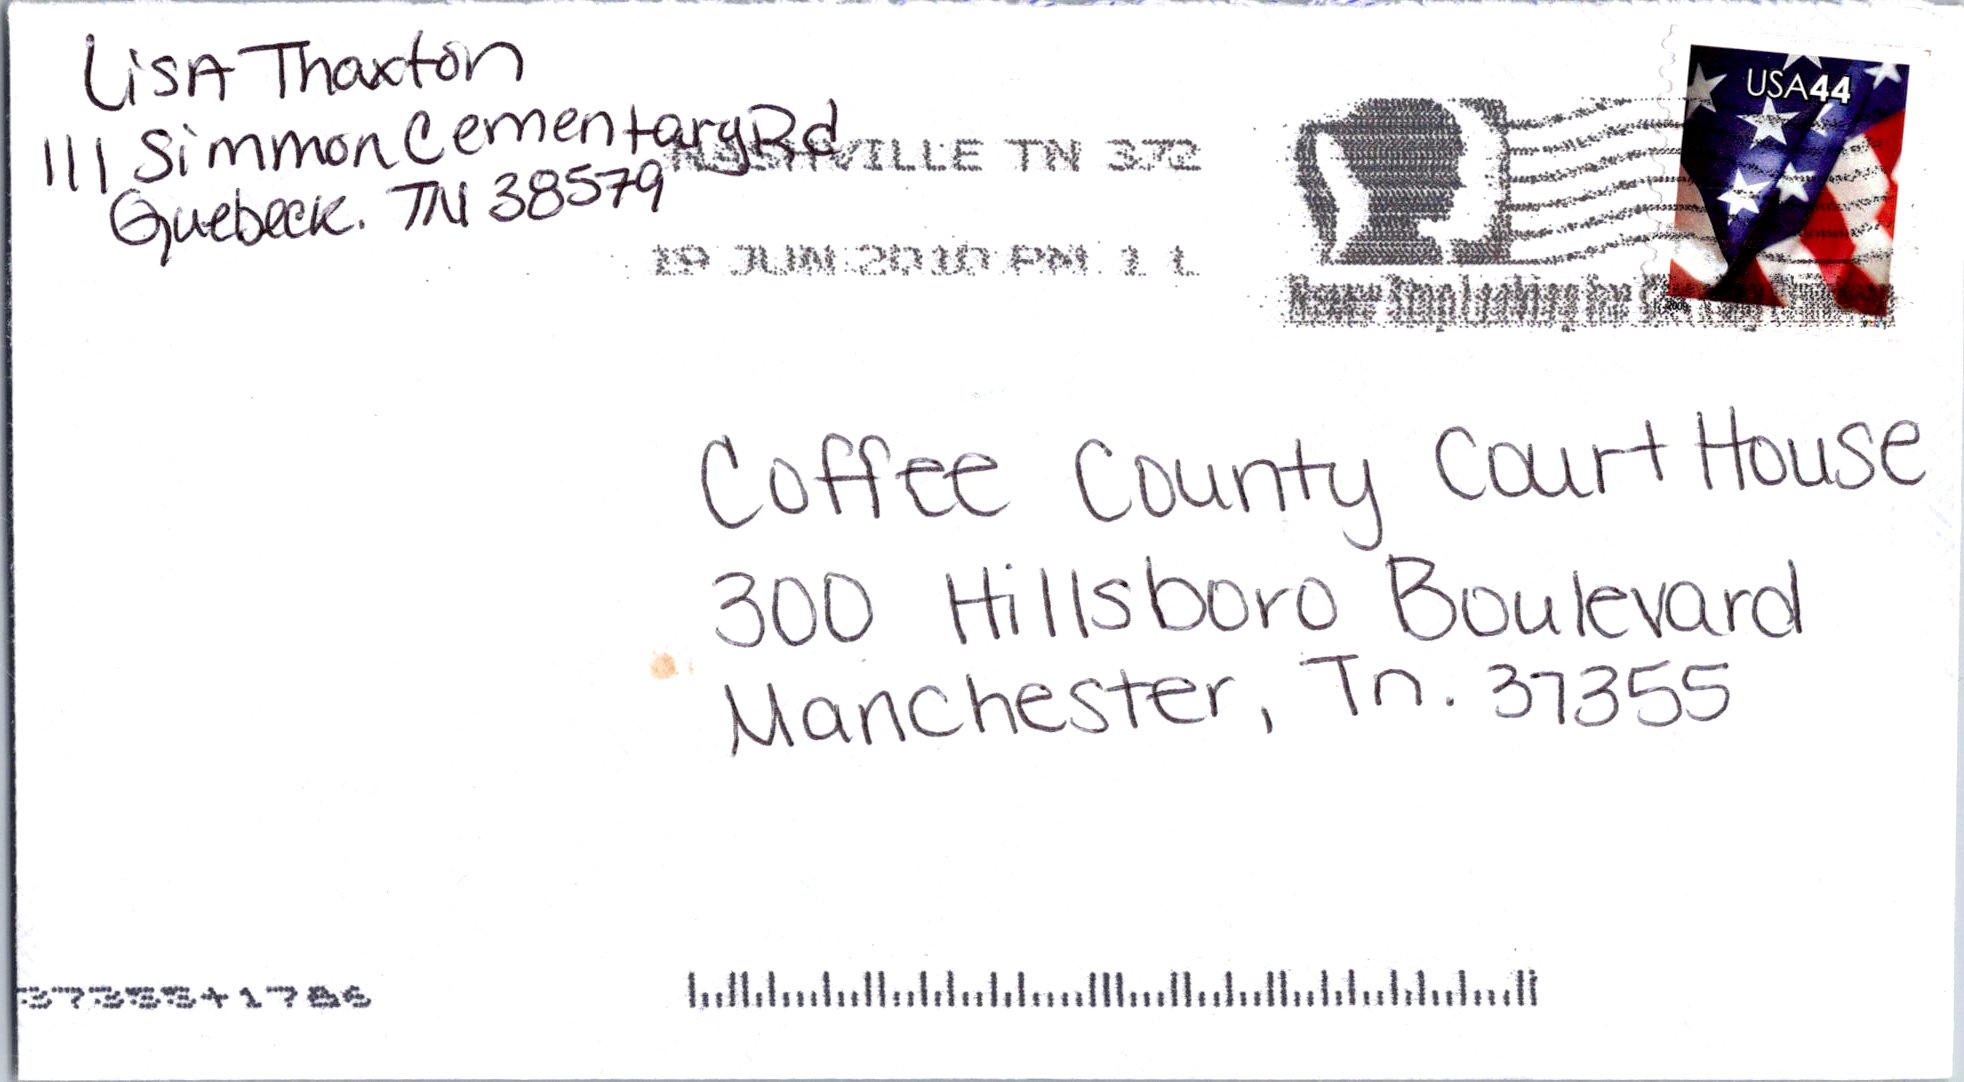 Lisa Thaxton
111 Simmon Cementary Rd
Quebeck. TN 38579
NASHVILLE TN 372
19 JUN 2010 PM 1 L
USA44
Coffee County Court House
300 Hillsboro Boulevard
Manchester, Tn. 37355
37355+1786